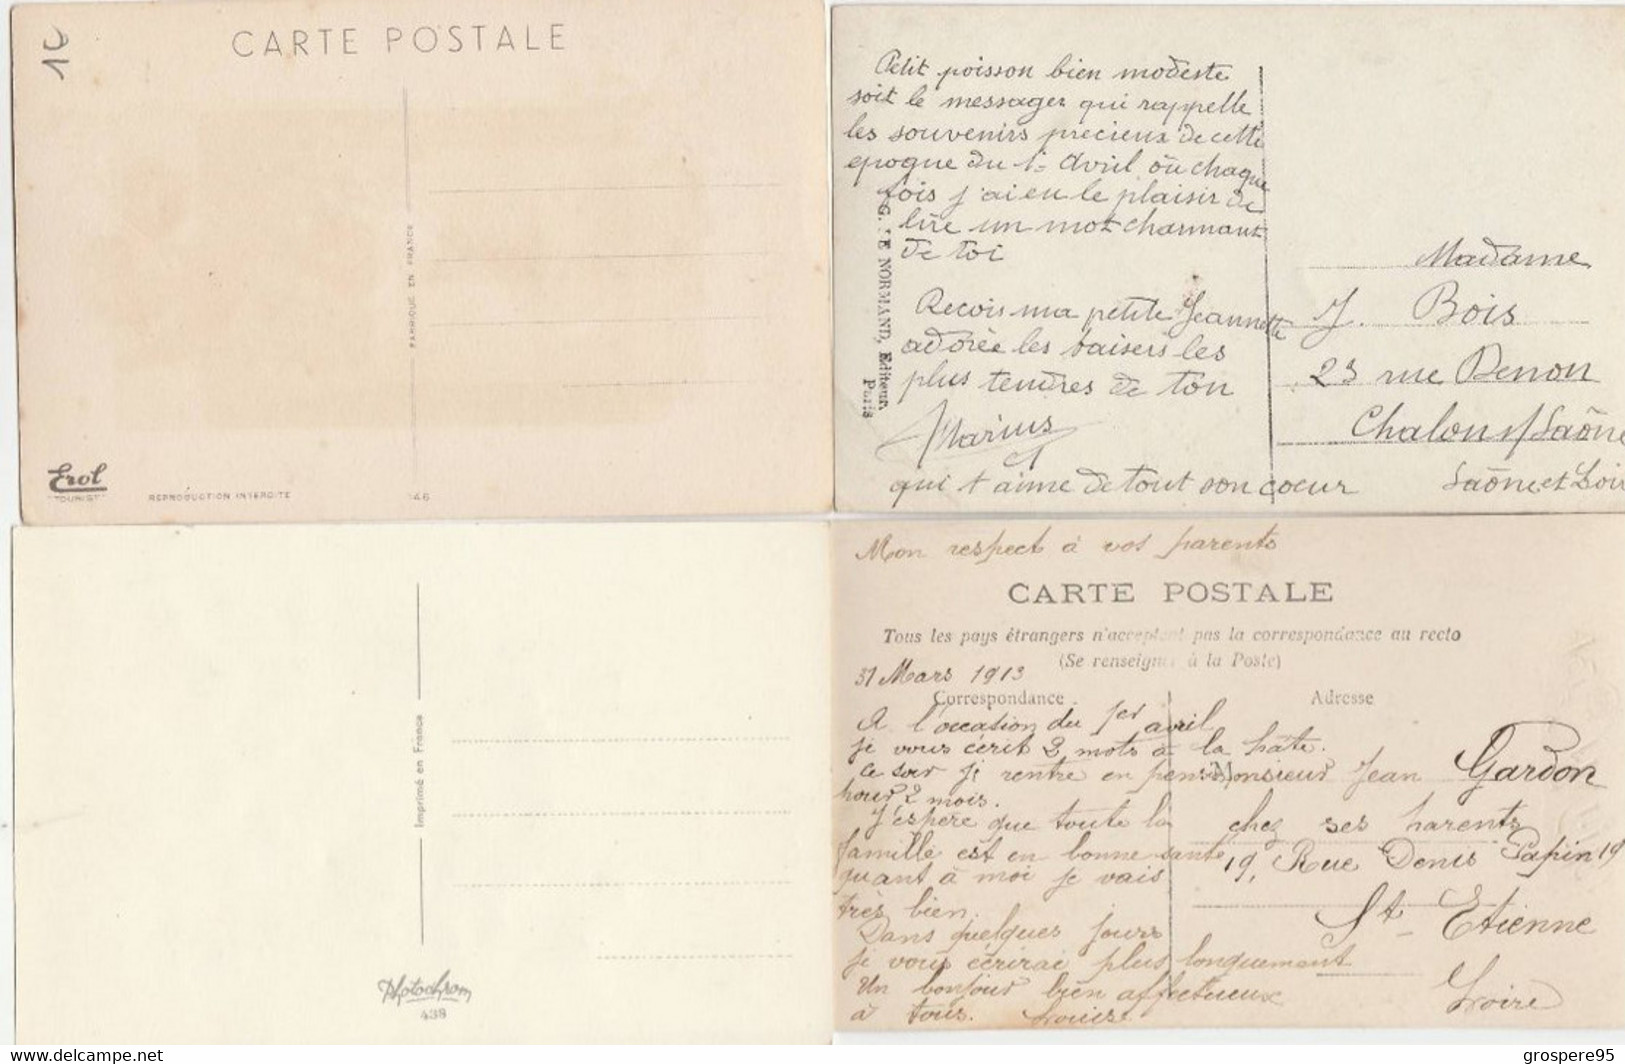 10
CARTE POSTALE
FABRIQUÉ EN FRANCE
Erol
"TOURIST"
REPRODUCTION INTERDITE
46
Petit poisson bien modeste
soit le messager qui rappelle
les souvenirs précieux de cette
epoque du 1er Avril où chaque
fois j'ai eu le plaisir de
lire un mot charmant
de toi
Recois ma petite Jeannette
adorée les baisers les
plus tendres de ton
Marius
qui t'aime de tout son coeur
NORMAND, Editeur,
Paris
Madame
J. Bois
23 rue Denon
Chalon s/Saône
Saône et Loir
Imprimé en France
Photochrom
438
Mon respect à vos parents
CARTE POSTALE
Tous les pays étrangers n'acceptent pas la correspondance au recto
(Se renseigner à la Poste)
31 Mars 1913
Correspondance
Adresse
A l'occasion du 1er avril
je vous écrit 2 mots à la hâte.
ce soir je rentre en pens
pour 2 mois.
J'espère que toute la
famille est en bonne santé
quant à moi je vais
très bien.
Dans quelques jours
je vous écrirai plus longuement
Un bonjour bien affectueux
à tous. Louise
Monsieur Jean Gardon
chez ses parents
19, Rue Denis Papin 19
St-Etienne
Loire
grospere95